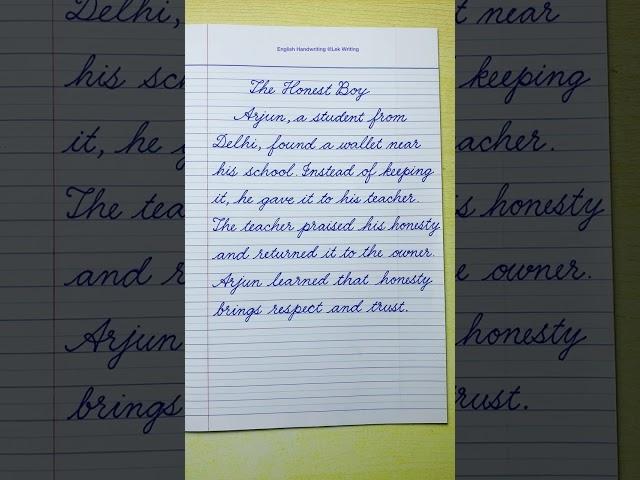 English Handwriting @Lek Writing
The Honest Boy
Arjun, a student from
Delhi, found a wallet near
his school. Instead of keeping
it, he gave it to his teacher.
The teacher praised his honesty
and returned it to the owner.
Arjun learned that honesty
brings respect and trust.